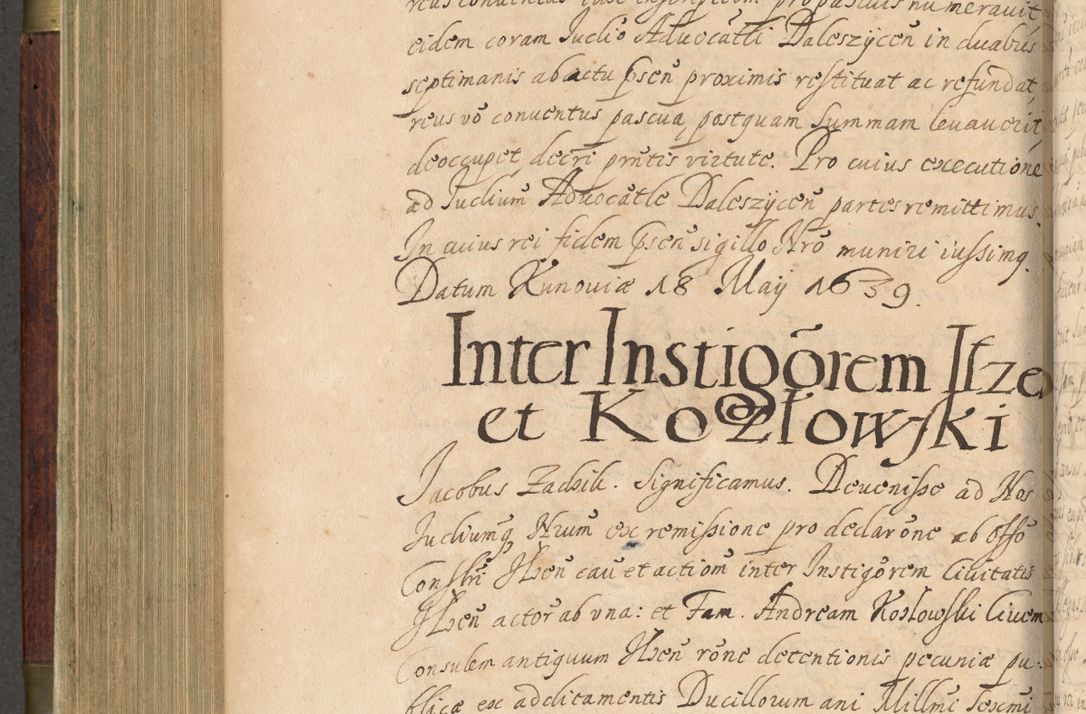 reus conventus iuxe inscriptiom pro pascuis numerauit
eidem coram Iudio Aduocatli Daleszycen̄ in duabus
septimanis ab actu p̄sen̄ proximis restituat ac refundat,
reus vō conuentus pascuą postquam summam leuauerit
deoccupet decr̄i pn̄tis virtute. Pro cuius executione
ad Iudium̄ Aduocatle Daleszycen̄ partes remittimus.
In cuius rei fidem p̄sen̄ sigillo Nrō muniri iussimq.
Datum Kunoviæ 18 Maij 1639.
Inter Instigōrem Ilze
et Kozłowski
Jacobus Zadzik. Significamus. Deuenisse ad Nos
Iudiumq Nrum̄ ex remissione pro declarōne ab offō
Conslri Ilzen̄ cau̅ et actiom̄ inter Instigōrem Ciuitatis
Ilzen̄ actōr ab vna: et Fam. Andream Kozlowski Ciuem
Consulem antiquum Ilzen̄ rōne detentionis pecuniæ pu-
blicæ ex addicamentis Ducillorum ani Millmī sexmī